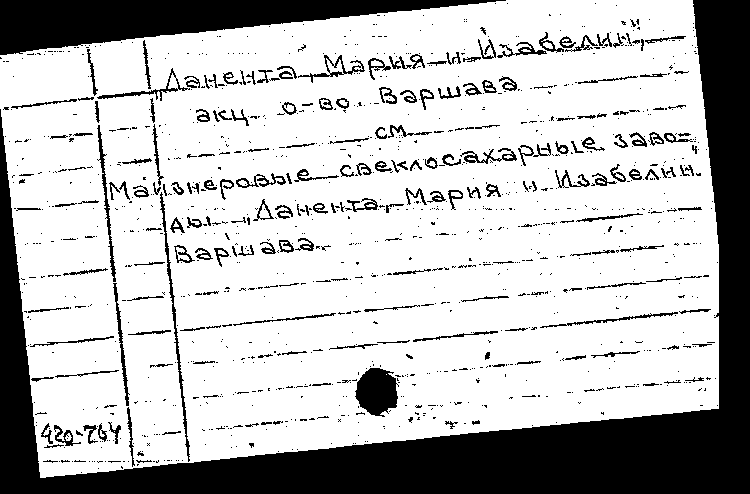 „Данента, Мария и Изабелин",
акц. о-во. Варшава
см.
Майзнеровые свеклосахарные заво=
ды „Данента, Мария и Изабелин"
Варшава.
420-764